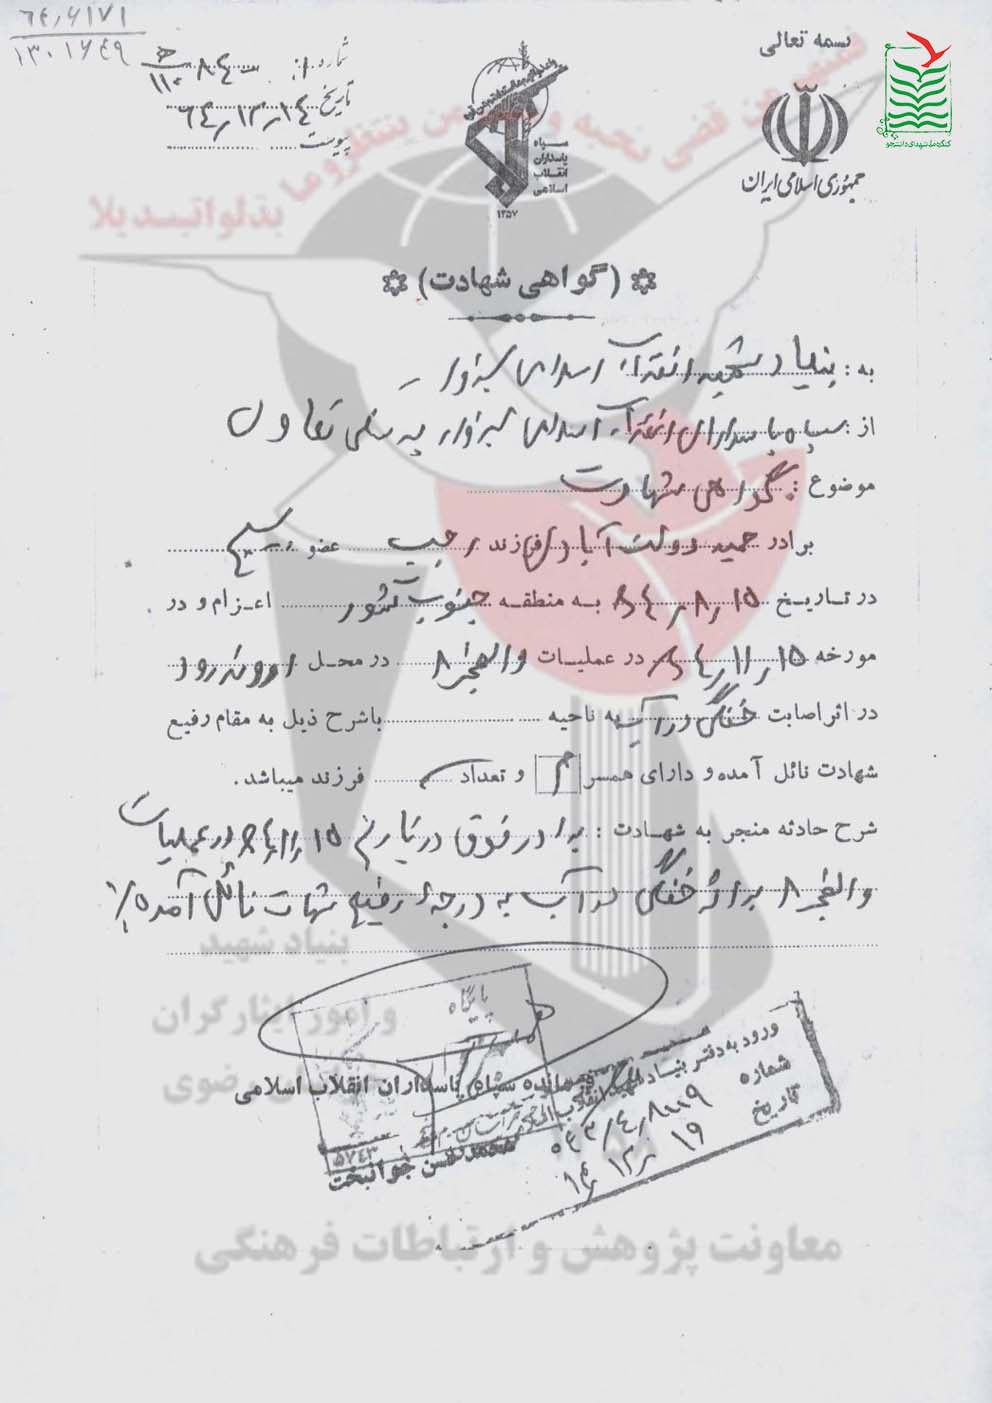 ۶۴٫۶۱۷۱
۱۳۰۱۶۴۹
بسمه تعالی
شماره:
تاریخ ۶۴٫۱۲٫۱۴
پیوست
سپاه
پاسداران
انقلاب
اسلامی
۱۳۵۷
جمهوری اسلامی ایران
کنگره ملی شهدای دانشجو
فمنهم من قضی نحبه و منهم من ینتظر و ما
بدلوا تبدیلا
(گواهی شهادت)
به: بنیاد شهید انقلاب اسلامی سبزوار
از: سپاه پاسداران انقلاب اسلامی سبزوار پرسنلی تعاون
موضوع: گواهی شهادت
برادر حمید دولت آبادی فرزند رجب عضو بسیج
در تاریخ ۱۵٫۸٫۶۴ به منطقه جنوب کشور اعزام و در
مورخه ۱۵٫۱۱٫۶۴ در عملیات والفجر ۸ در محل اروندرود
در اثر اصابت خفگی در آب به ناحیه باشرح ذیل به مقام رفیع
شهادت نائل آمده و دارای همسر و تعداد فرزند میباشد.
شرح حادثه منجر به شهادت: برادر فوق در تاریخ ۱۵٫۱۱٫۶۴ در عملیات
والفجر ۸ بر اثر خفگی در آب به درجه رفیع شهادت نائل آمده
بنیاد شهید
و امور ایثارگران
رضوی
پایگاه
فرمانده سپاه پاسداران انقلاب اسلامی
محمد حسن جوانبخت
۵۷۴۳
ورود به دفتر بنیاد شهید انقلاب اسلامی
شماره
تاریخ ۱۹
معاونت پژوهش و ارتباطات فرهنگی